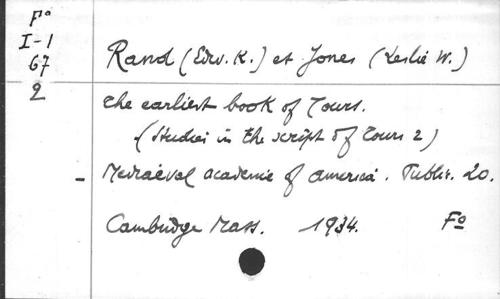 Fº
I-1
67
2
Rand (Edw. K.) et Jones (Leslie W.)
the earliest book of Tours.
(Studies in the script of Tours 2)
- Mediaeval academie of america. Public. 20.
Cambridge Mass. 1934. Fº